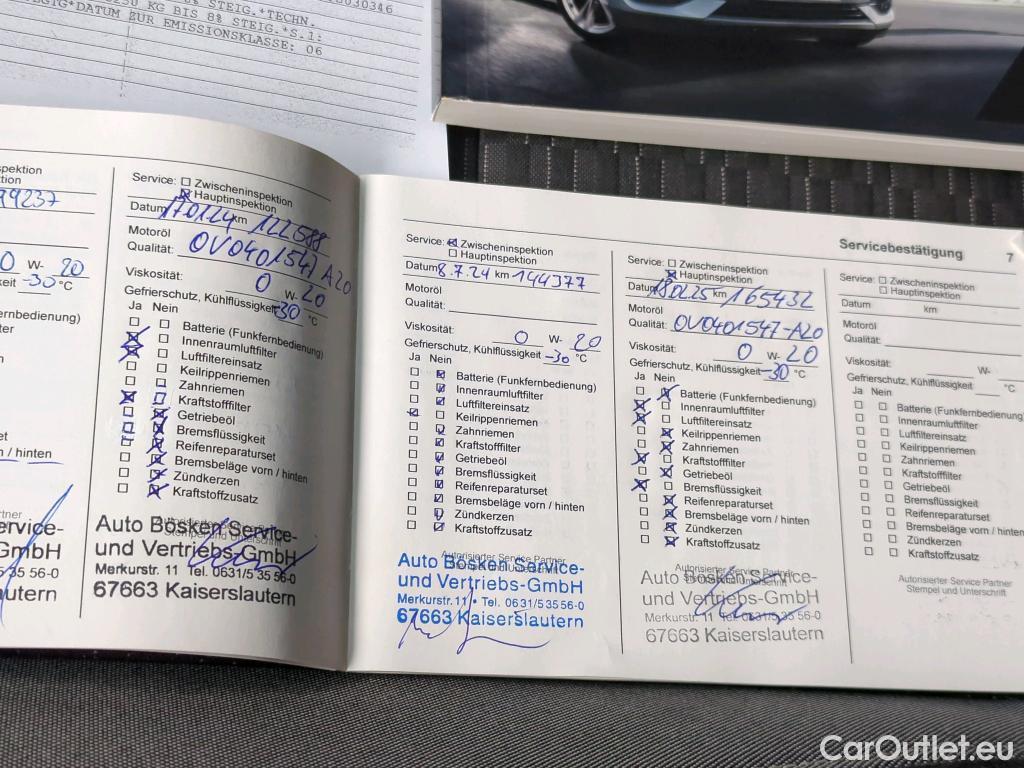 30346
KG BIS 8% STEIG.*TECHN.
*DATUM ZUR STEIG.*S.1:
EMISSIONSKLASSE: 06
Servicebestätigung 7
pektion
ktion
W- 20
-30 °C
ernbedienung)
ter
n / hinten
ervice-
GmbH
35 56-0
autern
Service: Zwischeninspektion
Hauptinspektion
Datum 17.01.24 km 122588
Motoröl
Qualität: OV0401547 A20
Viskosität: 0 W- 20
Gefrierschutz, Kühlflüssigkeit -30 °C
Ja Nein
Batterie (Funkfernbedienung)
Innenraumluftfilter
Luftfiltereinsatz
Keilrippenriemen
Zahnriemen
Kraftstofffilter
Getriebeöl
Bremsflüssigkeit
Reifenreparaturset
Bremsbeläge vorn / hinten
Zündkerzen
Kraftstoffzusatz
Autorisierter Service Partner
Stempel und Unterschrift
Auto Bosken Service-
und Vertriebs-GmbH
Merkurstr. 11 Tel. 0631/5 35 56-0
67663 Kaiserslautern
Service: Zwischeninspektion
Hauptinspektion
Datum 8.7.24 km 144377
Motoröl
Qualität:
Viskosität: 0 W- 20
Gefrierschutz, Kühlflüssigkeit -30 °C
Ja Nein
Batterie (Funkfernbedienung)
Innenraumluftfilter
Luftfiltereinsatz
Keilrippenriemen
Zahnriemen
Kraftstofffilter
Getriebeöl
Bremsflüssigkeit
Reifenreparaturset
Bremsbeläge vorn / hinten
Zündkerzen
Kraftstoffzusatz
Autorisierter Service Partner
Auto Bosken Service-
und Vertriebs-GmbH
Merkurstr. 11 • Tel. 0631/5 35 56-0
67663 Kaiserslautern
Service: Zwischeninspektion
Hauptinspektion
Datum 18.02.25 km 165432
Motoröl
Qualität: OV0401547-A20
Viskosität: 0 W- 20
Gefrierschutz, Kühlflüssigkeit -30 °C
Ja Nein
Batterie (Funkfernbedienung)
Innenraumluftfilter
Luftfiltereinsatz
Keilrippenriemen
Zahnriemen
Kraftstofffilter
Getriebeöl
Bremsflüssigkeit
Reifenreparaturset
Bremsbeläge vorn / hinten
Zündkerzen
Kraftstoffzusatz
Autorisierter Service Partner
Stempel und Unterschrift
Auto Bosken Service-
und Vertriebs-GmbH
Merkurstr. 11 Tel. 0631/5 35 56-0
67663 Kaiserslautern
Service: Zwischeninspektion
Hauptinspektion
Datum km
Motoröl
Qualität:
Viskosität: W-
Gefrierschutz, Kühlflüssigkeit °C
Ja Nein
Batterie (Funkfernbedienung)
Innenraumluftfilter
Luftfiltereinsatz
Keilrippenriemen
Zahnriemen
Kraftstofffilter
Getriebeöl
Bremsflüssigkeit
Reifenreparaturset
Bremsbeläge vorn / hinten
Zündkerzen
Kraftstoffzusatz
Autorisierter Service Partner
Stempel und Unterschrift
CarOutlet.eu